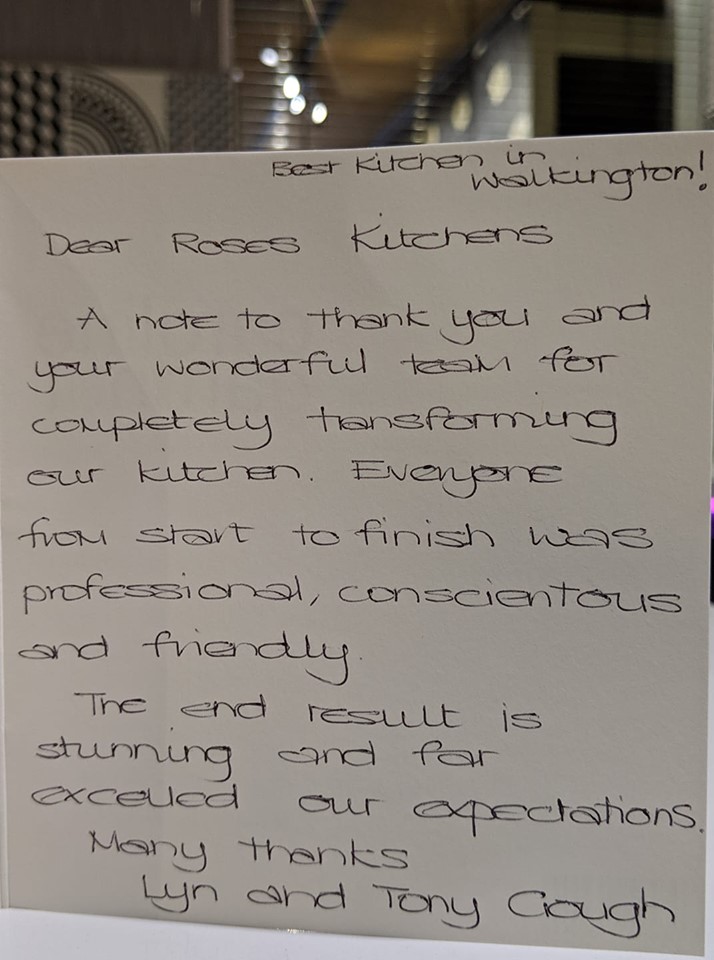 Best Kitchen in
Walkington!
Dear Roses Kitchens
A note to thank you and
your wonderful team for
completely transforming
our kitchen. Everyone
from start to finish was
professional, conscientous
and friendly.
The end result is
stunning and far
excelled our expectations.
Many thanks
Lyn and Tony Clough